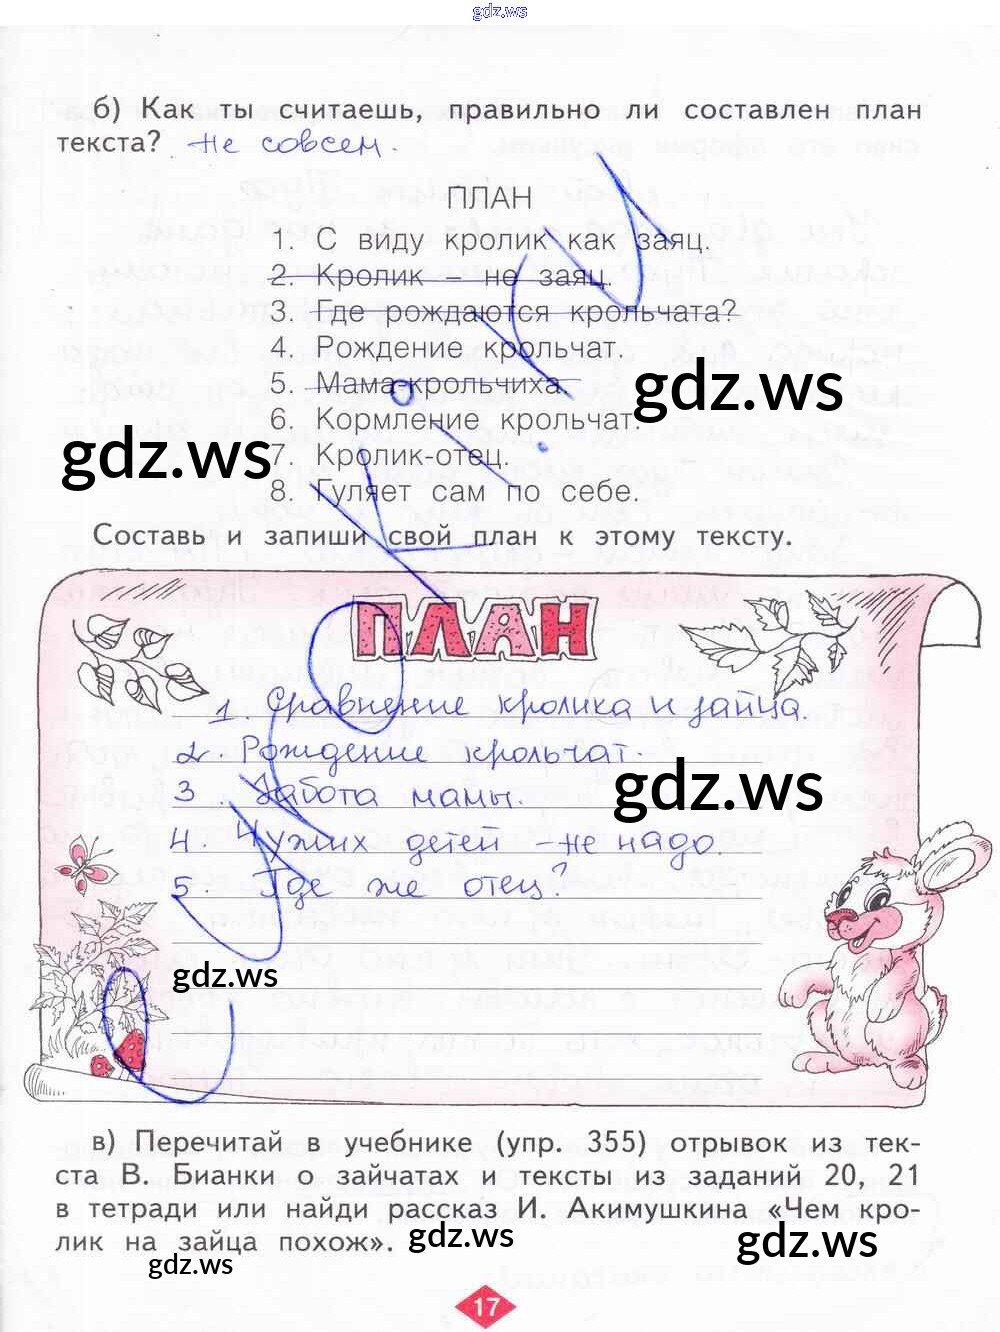 gdz.ws
б) Как ты считаешь, правильно ли составлен план
текста? Не совсем.
ПЛАН
1. С виду кролик как заяц.
2. Кролик – не заяц.
3. Где рождаются крольчата?
4. Рождение крольчат.
5. Мама-крольчиха.
gdz.ws
6. Кормление крольчат.
gdz.ws
7. Кролик-отец.
8. Гуляет сам по себе.
Составь и запиши свой план к этому тексту.
ПЛАН
1 Сравнение кролика и зайца
2. Рождение крольчат.
gdz.ws
3. Забота мамы.
4. Чужих детей – не надо
5 Где же отец?
gdz.ws
в) Перечитай в учебнике (упр. 355) отрывок из тек-
ста В. Бианки о зайчатах и тексты из заданий 20, 21
в тетради или найди рассказ И. Акимушкина «Чем кро-
лик на зайца похож».
gdz.ws
gdz.ws
gdz.ws
17